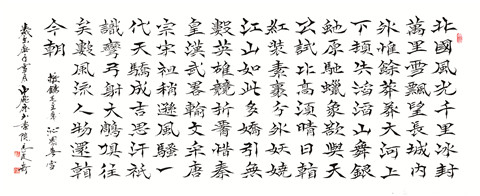 北國風光千里冰封
萬里雪飄望長城内
外惟餘莽莽大河上
下頓失滔滔山舞銀
蛇原馳蠟象欲與天
公試比高須晴日看
紅裝素裹分外妖嬈
江山如此多嬌引無
數英雄競折腰惜秦
皇漢武略輸文采唐
宗宋祖稍遜風騷一
代天驕成吉思汗祇
識彎弓射大鵰俱往
矣數風流人物還看
今朝
録毛主席 沁園春雪